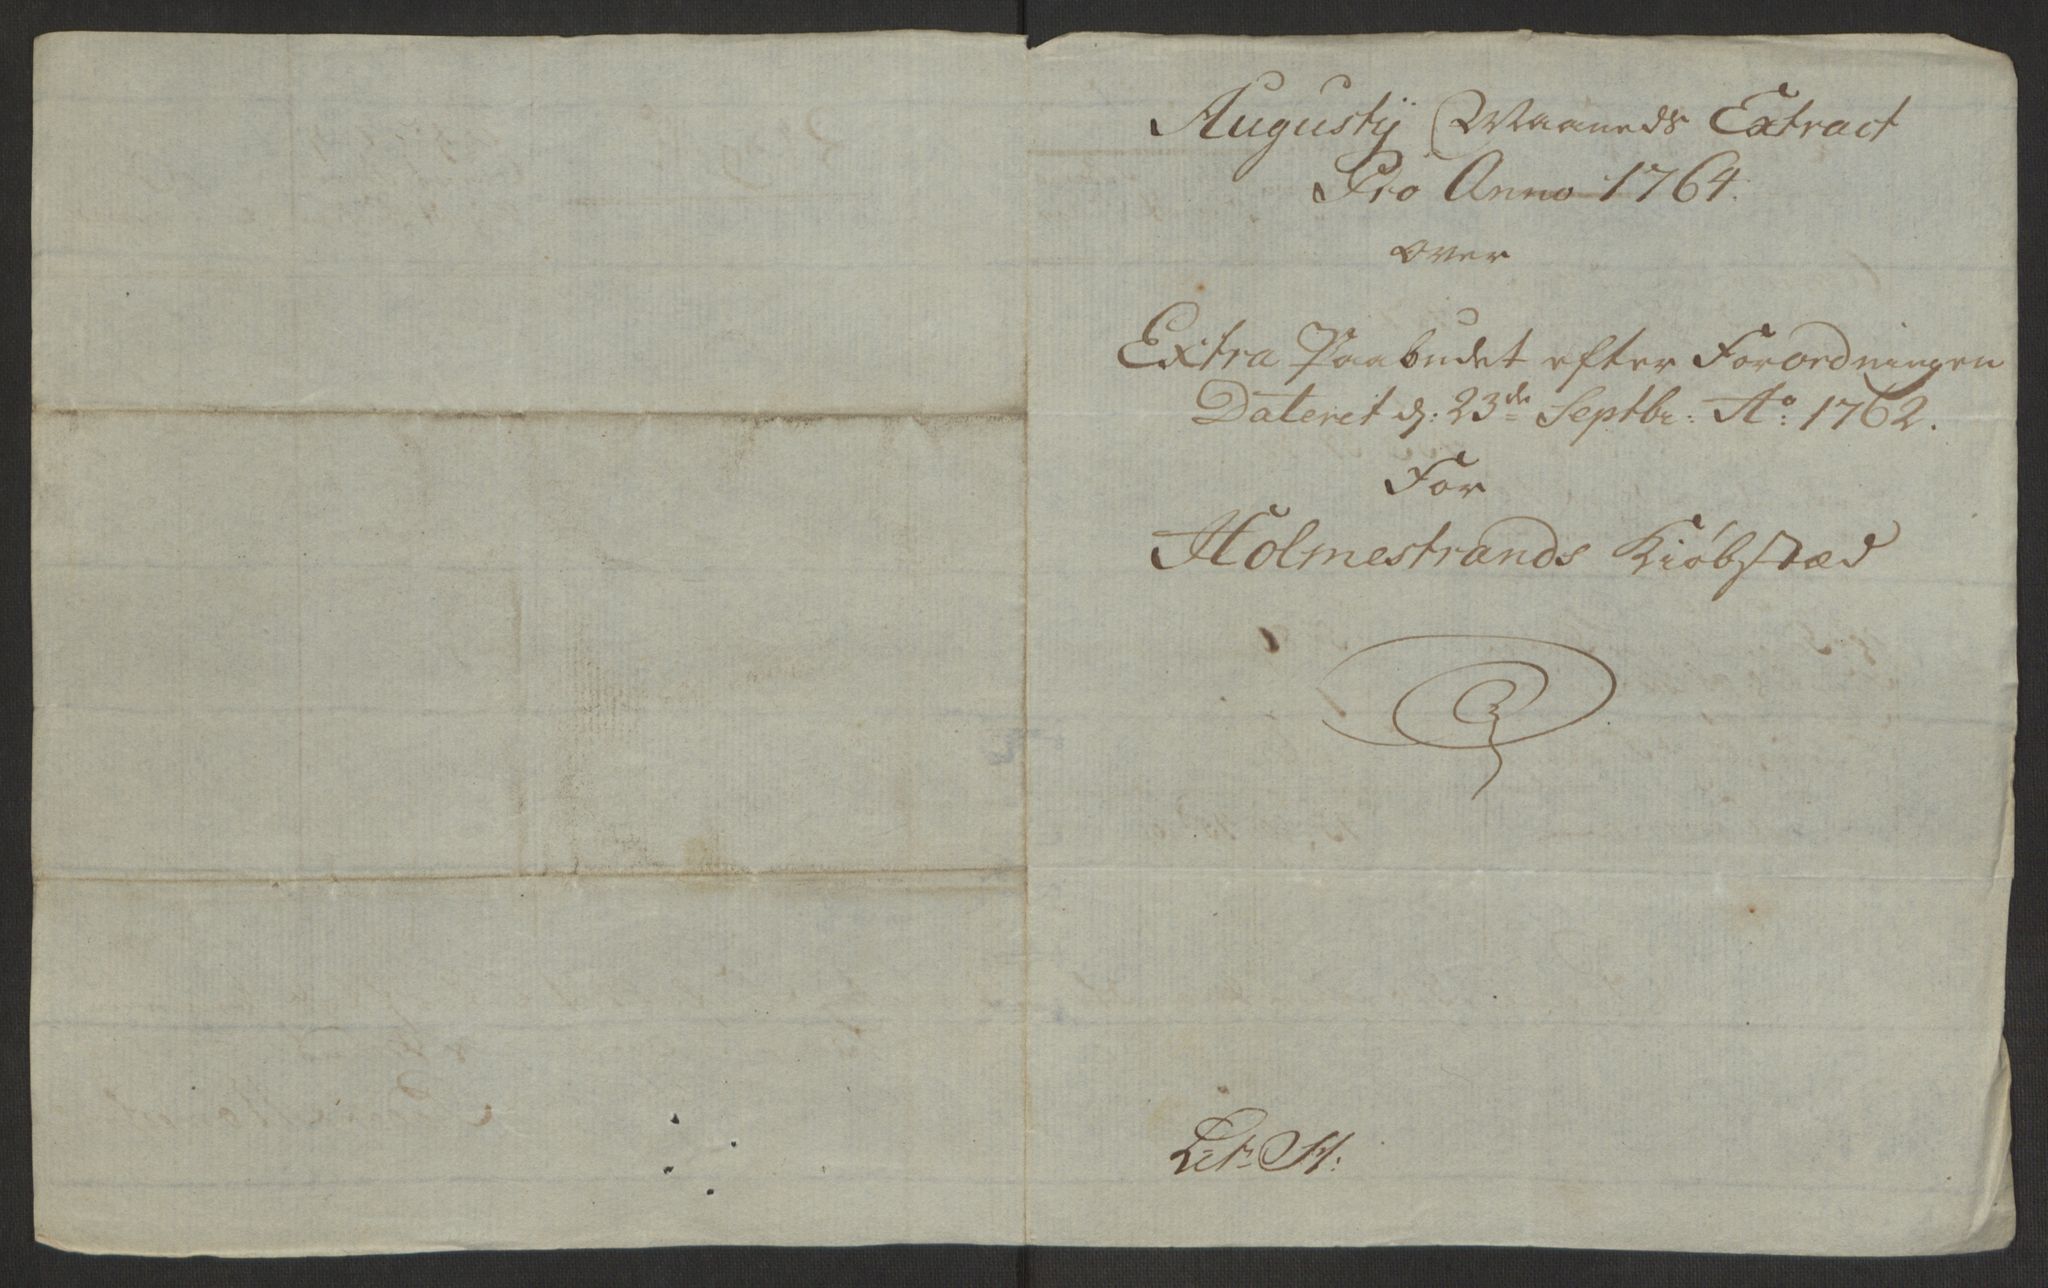 Augustij Maaneds Extract
Pro Anno 1764.
over
Extra Paabudet efter Forordningen
Dateret d: 23de Septbr: Ao: 1762.
For
Holmestrands Kiøbstæd
Litr H: